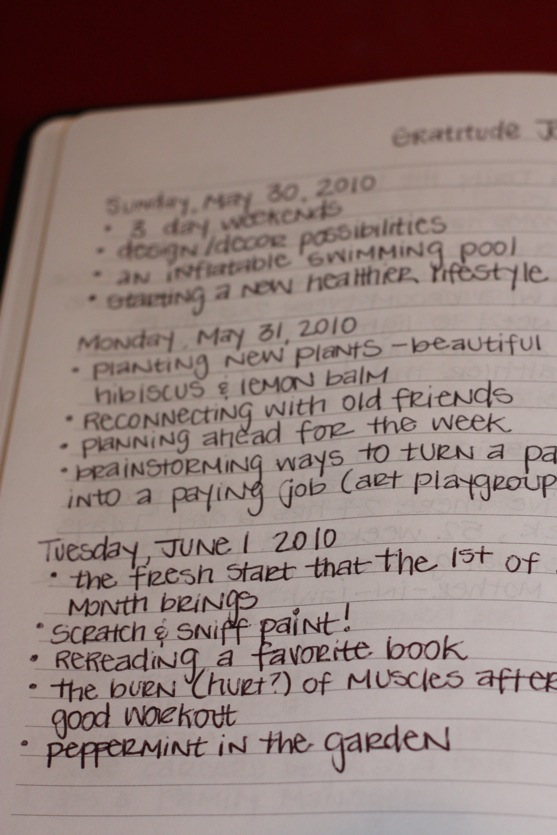 Gratitude J
Sunday, May 30, 2010
• 3 day weekends
• design/decor possibilities
• an inflatable swimming pool
• starting a new healthier lifestyle
Monday, May 31, 2010
• planting new plants - beautiful
hibiscus & lemon balm
• Reconnecting with old friends
• planning ahead for the week
• brainstorming ways to turn a pa
into a paying job (art playgroup
Tuesday, June 1 2010
• the fresh start that the 1st of
month brings
• scratch & sniff paint!
• Rereading a favorite book
• the burn (hurt?) of muscles after
good workout
• peppermint in the garden